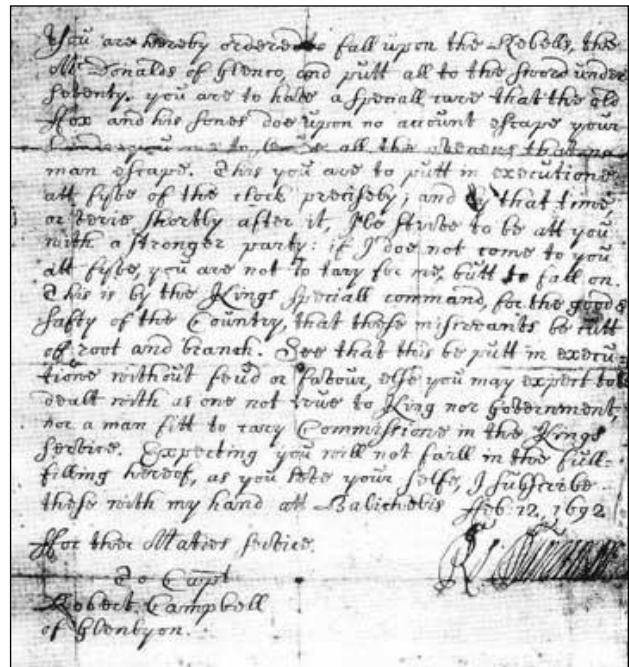 You are hereby ordered to fall upon the Rebells, the
McDonalds of Glenco, and putt all to the sword under
seventy. you are to have a speciall care that the old
ffox and his sones doe upon no account escape your
you are to all the avenues that no
man escape. This you are to putt in executione
att fyve of the clock precisely; and by that time,
or verie shortly after it, I'le strive to be att you
with a stronger party: if I doe not come to you
att fyve, you are not to tary for me, butt to fall on.
This is by the Kings speciall command, for the good &
safty of the Country, that these miscreants be cutt
of root and branch. See that this be putt in execu-
tione without feud or favour, else you may expect to be
dealt with as one not true to King nor Government,
nor a man fitt to cary Commissione in the Kings
service. Expecting you will not faill in the full-
filling hereof, as you love your selfe, I subscribe
these with my hand att Balicholis Feb: 12, 1692
ffor ther Maties service.
To Capt
Robert Campbell
of Glenlyon.